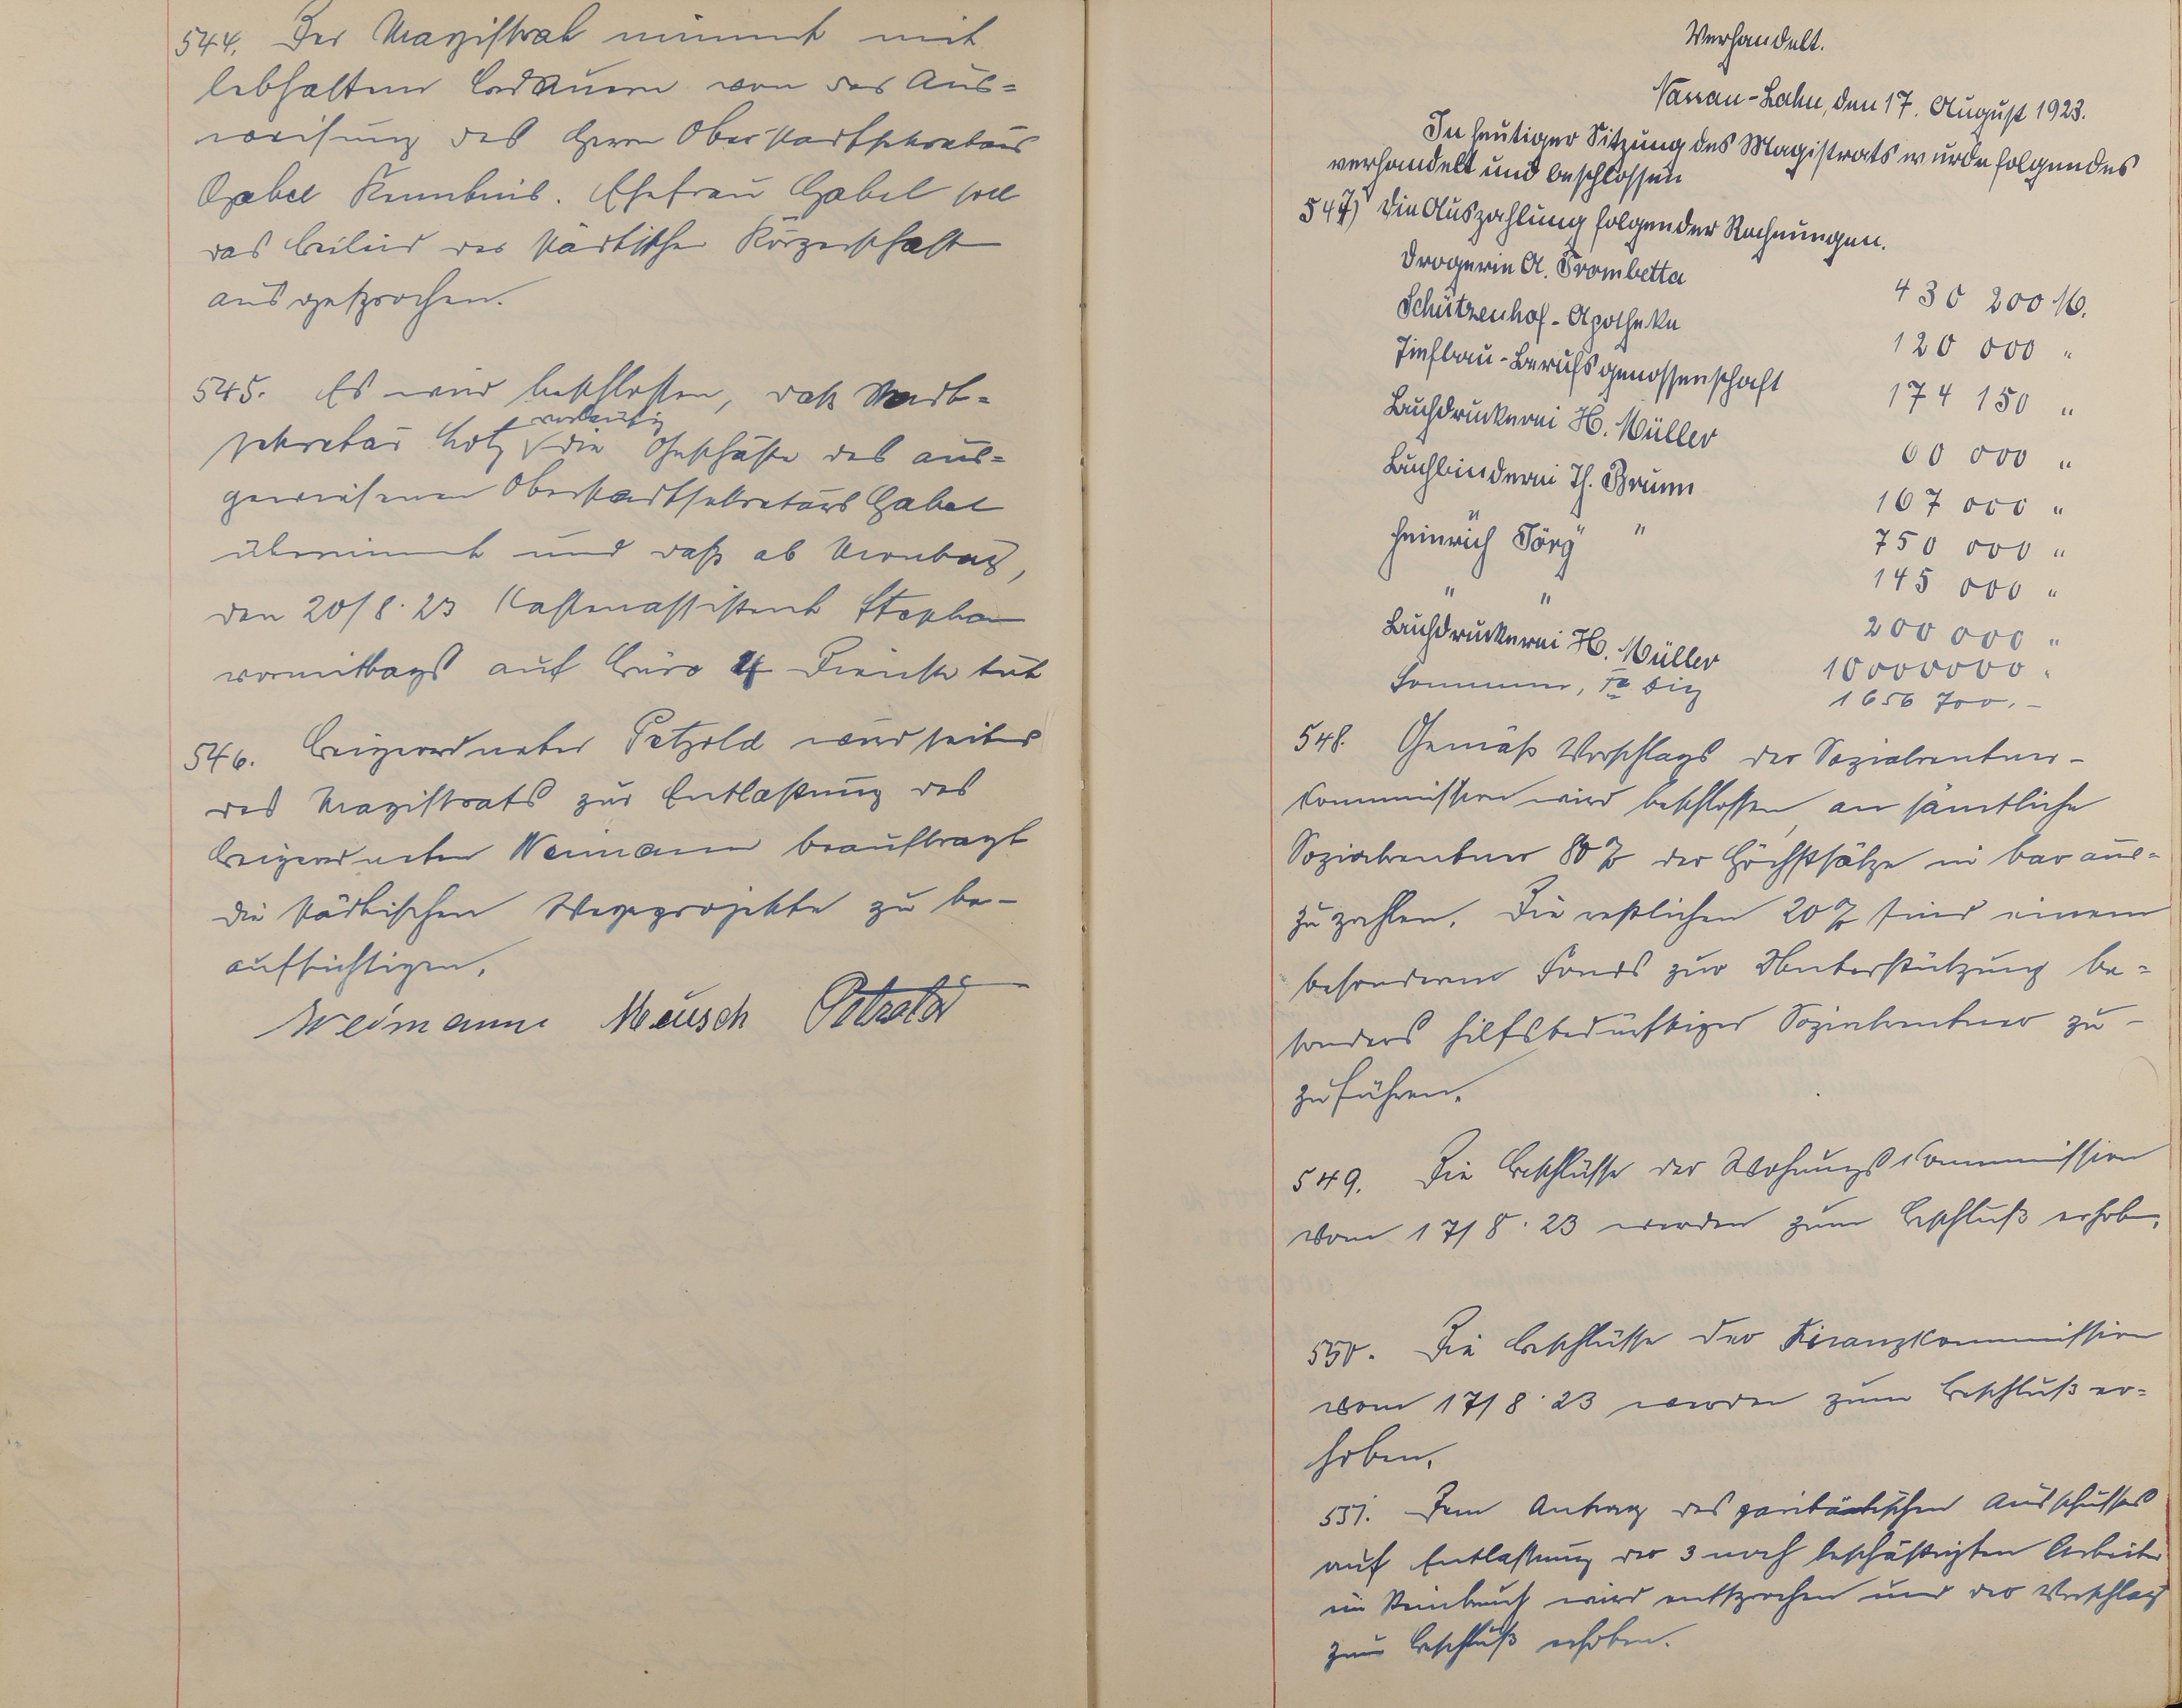 544. Der Magistrat nimmt mit
lebhaftem Bedauern von der Aus=
weisung des Herrn Oberstadtsekretärs
Gabel Kenntnis. Ehefrau Gabel soll
das Beileid der städtischen Körperschaft
ausgesprochen.
545. Es wird beschlossen, daß Stadt=
vorläufig
sekretär Lotz die Geschäfte des aus=
gewiesenen Oberstadtsekretärs Gabel
übernimmt und daß ab Montag,
den 20/8. 23 Kassenassistent Stephan
vormittags auf Büro 4 Dienste tut
546. Beigeordneter Petzold wird seitens
des Magistrats zur Entlastung des
Beigeordneten Weimann beauftragt
die städtischen Wegeprojekte zu be-
aufsichtigen.
Weimann Meusch Petzold
Verhandelt.
Nassau-Lahn, den 17. August 1923.
In heutiger Sitzung des Magistrats wurde folgendes
verhandelt und beschlossen
547) Die Auszahlung folgender Rechnungen.
Drogerie A. Trombetta 430 200 M.
Schützenhof-Apotheke 120 000 "
Tiefbau-Berufsgenossenschaft 174 150 "
Buchdruckerei H. Müller 60 000 "
Buchbinderei Th. Brunn 167 000 "
" " " 750 000 "
Heinrich Jörg 145 000 "
" " 200 000 "
Buchdruckerei H. Müller 10000000 "
Sommer, Sig 1 656 700.-
548. Gemäß Vorschlags der Sozialrentner-
Kommission wird beschlossen, an sämtliche
Sozialrentner 80 % der Höchstsätze in bar aus=
zu zahlen. Die restlichen 20 % sind einem
besonderen Fonds zur Unterstützung be=
sonders hilfsbedürftiger Sozialrentner zu-
zuführen.
549. Die Beschlüsse der Wohnungskommission
vom 17/8. 23 werden zum Beschluß erhoben.
550. Die Beschlüsse der Finanzkommission
vom 17/8. 23 werden zum Beschluß er=
hoben.
551. Dem Antrag des paritätischen Ausschusses
auf Entlassung der 3 noch beschäftigten Arbeiter
im Steinbruch wird entsprochen und der Vorschlag
zum Beschluß erhoben.